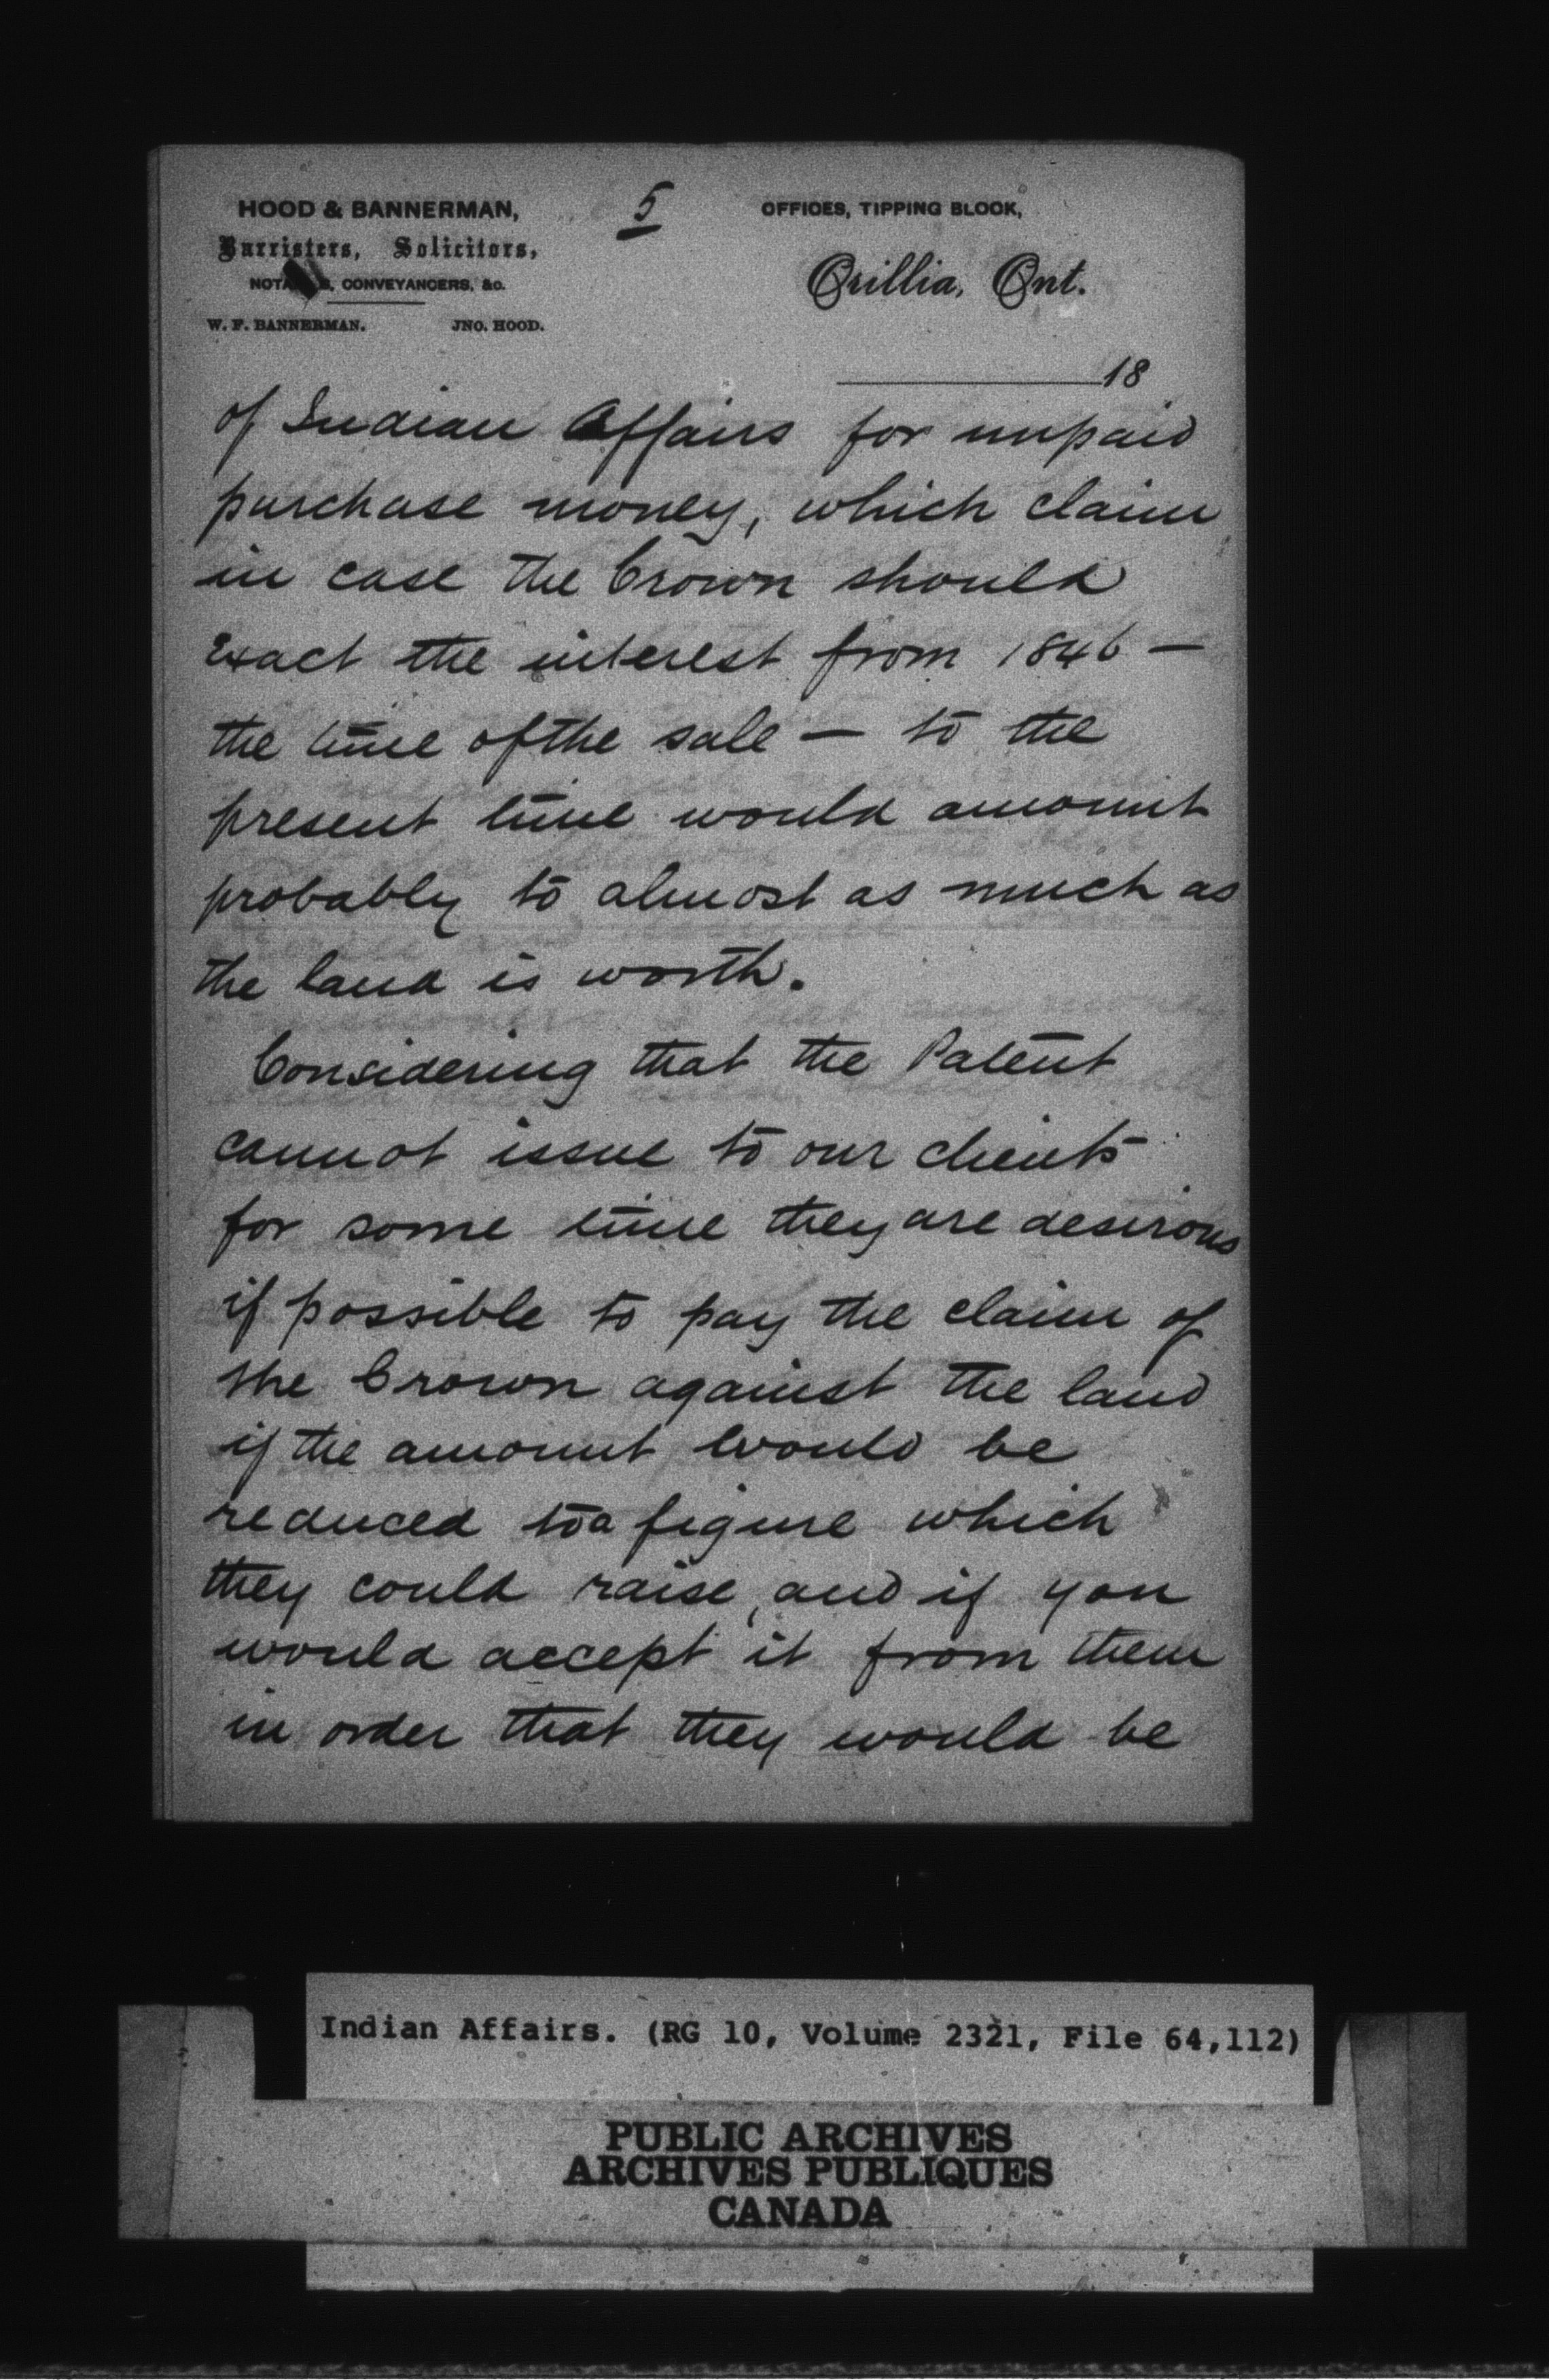 HOOD & BANNERMAN,
Barristers, Solicitors,
CONVEYANCERS, &c.
W. F. BANNERMAN. JNO. HOOD.
5
OFFICES, TIPPING BLOCK,
Orillia, Ont.
18
of Indian Affairs for unpaid
purchase money, which claim
in case the Crown should
exact the interest from 1846 —
the time of the sale — to the
present time would amount
probably to almost as much as
the land is worth.
Considering that the Patent
cannot issue to our clients
for some time they are desirous
if possible to pay the claim of
the Crown against the land
if the amount would be
reduced to a figure which
they could raise, and if you
would accept it from them
in order that they would be
Indian Affairs. (RG 10, Volume 2321, File 64,112)
PUBLIC ARCHIVES
ARCHIVES PUBLIQUES
CANADA